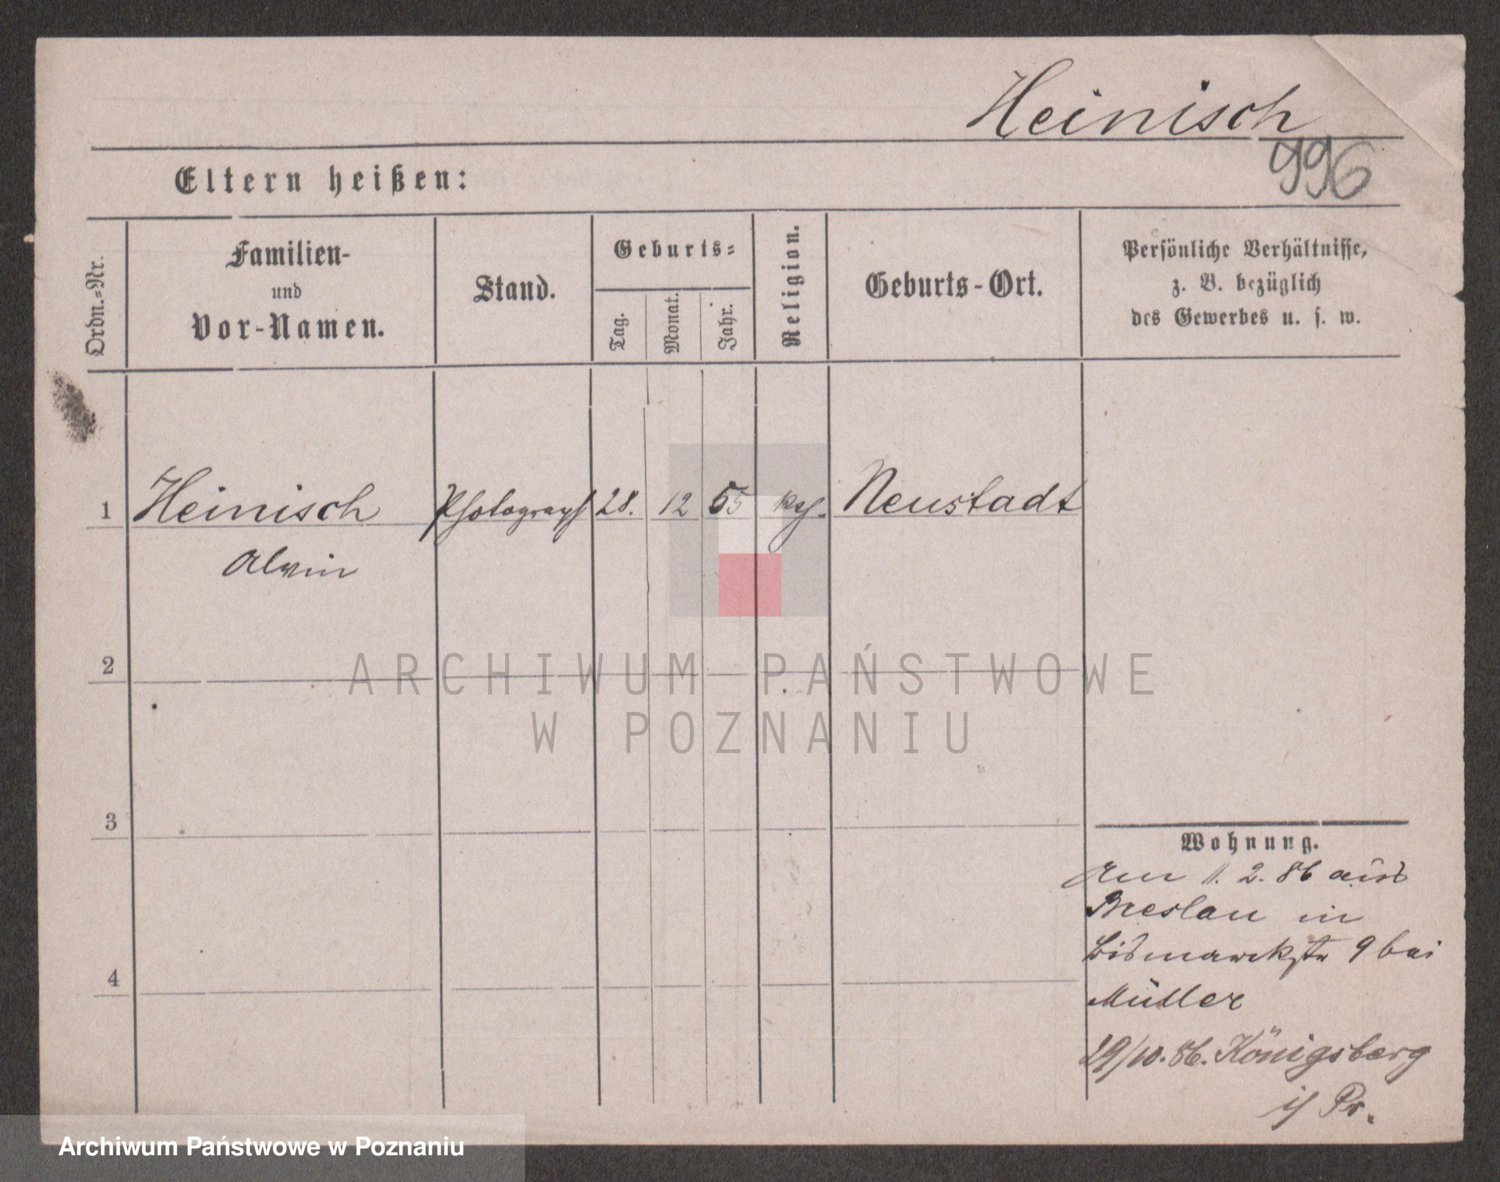 Heinisch
996
Eltern heißen:
Ordn.-Nr.
Familien-
und
Vor-Namen.
Stand.
Geburts-
Tag.
Monat.
Jahr.
Religion.
Geburts-Ort.
Persönliche Verhältnisse,
z. B. bezüglich
des Gewerbes u. s. w.
1 Heinisch Photograph 28. 12 55 Neustadt
Alwin
2
3
4
Wohnung.
Am 1. 2. 86 aus
Breslau in
Bismarckstr 9 bei
Müller
29/10. 86. Königsberg
i/ Pr.
ARCHIWUM PAŃSTWOWE
W POZNANIU
Archiwum Państwowe w Poznaniu